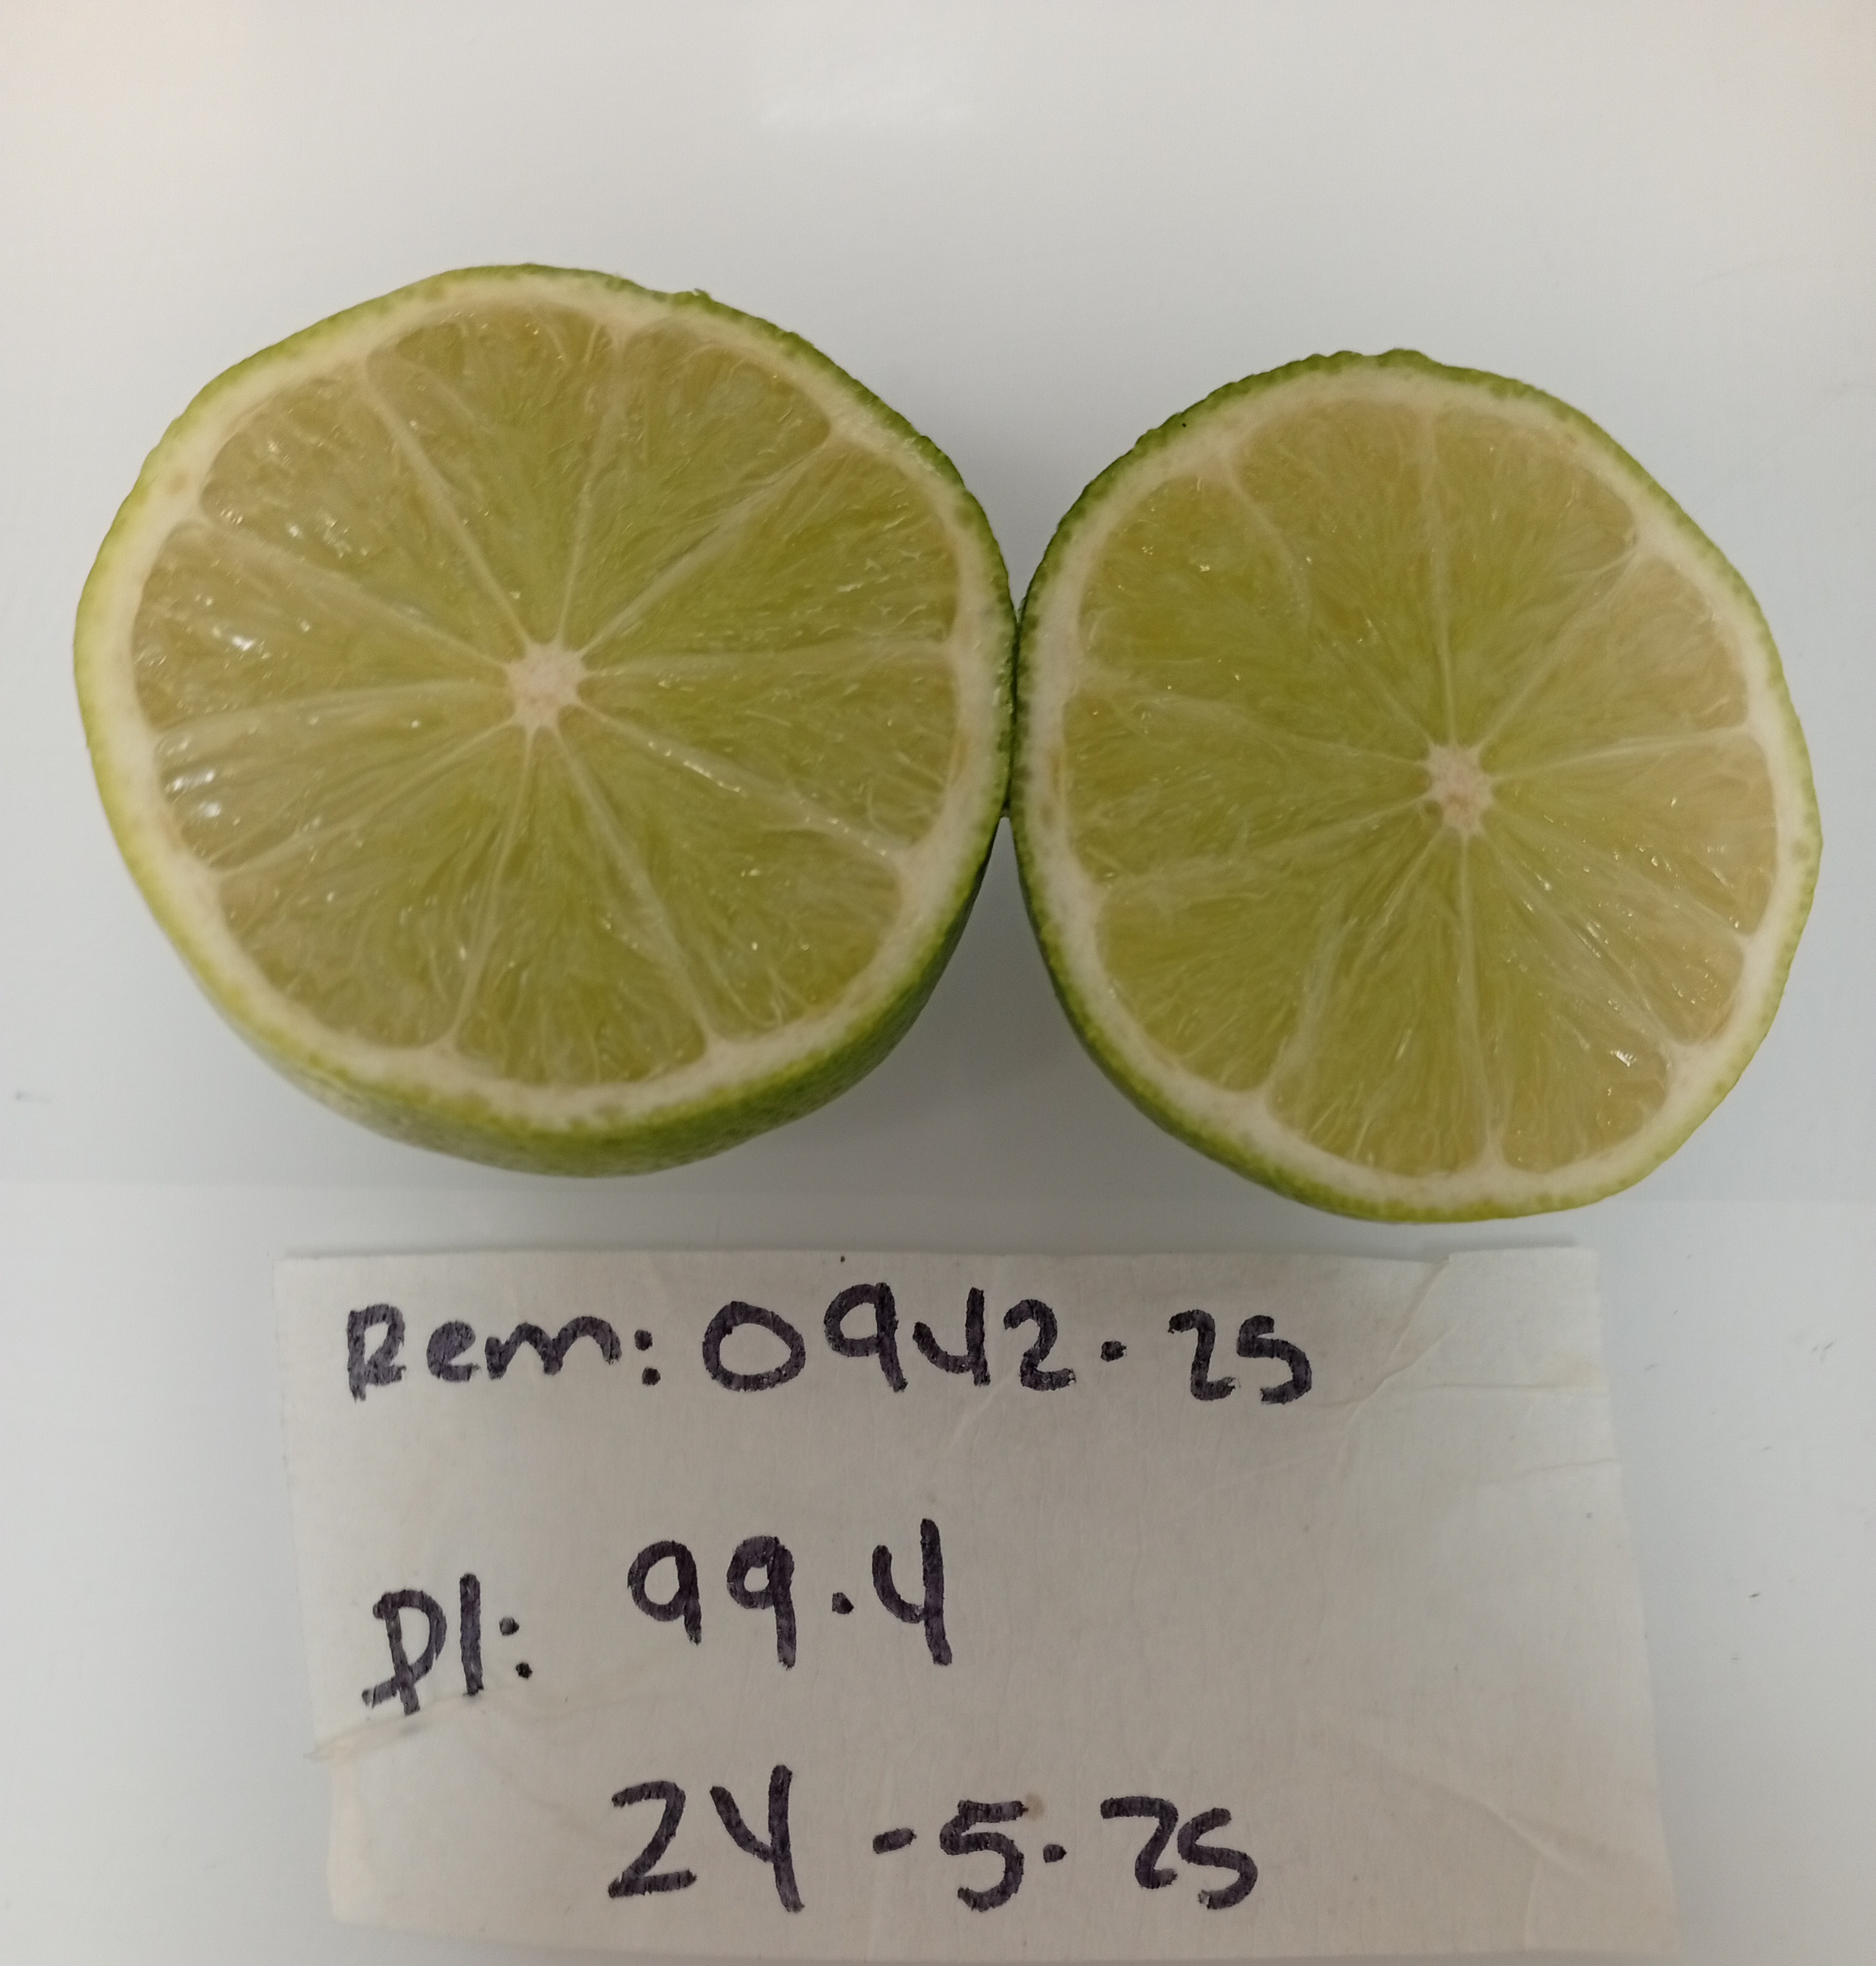 Rem: 0942-25
Pl: 99.4
24-5-25